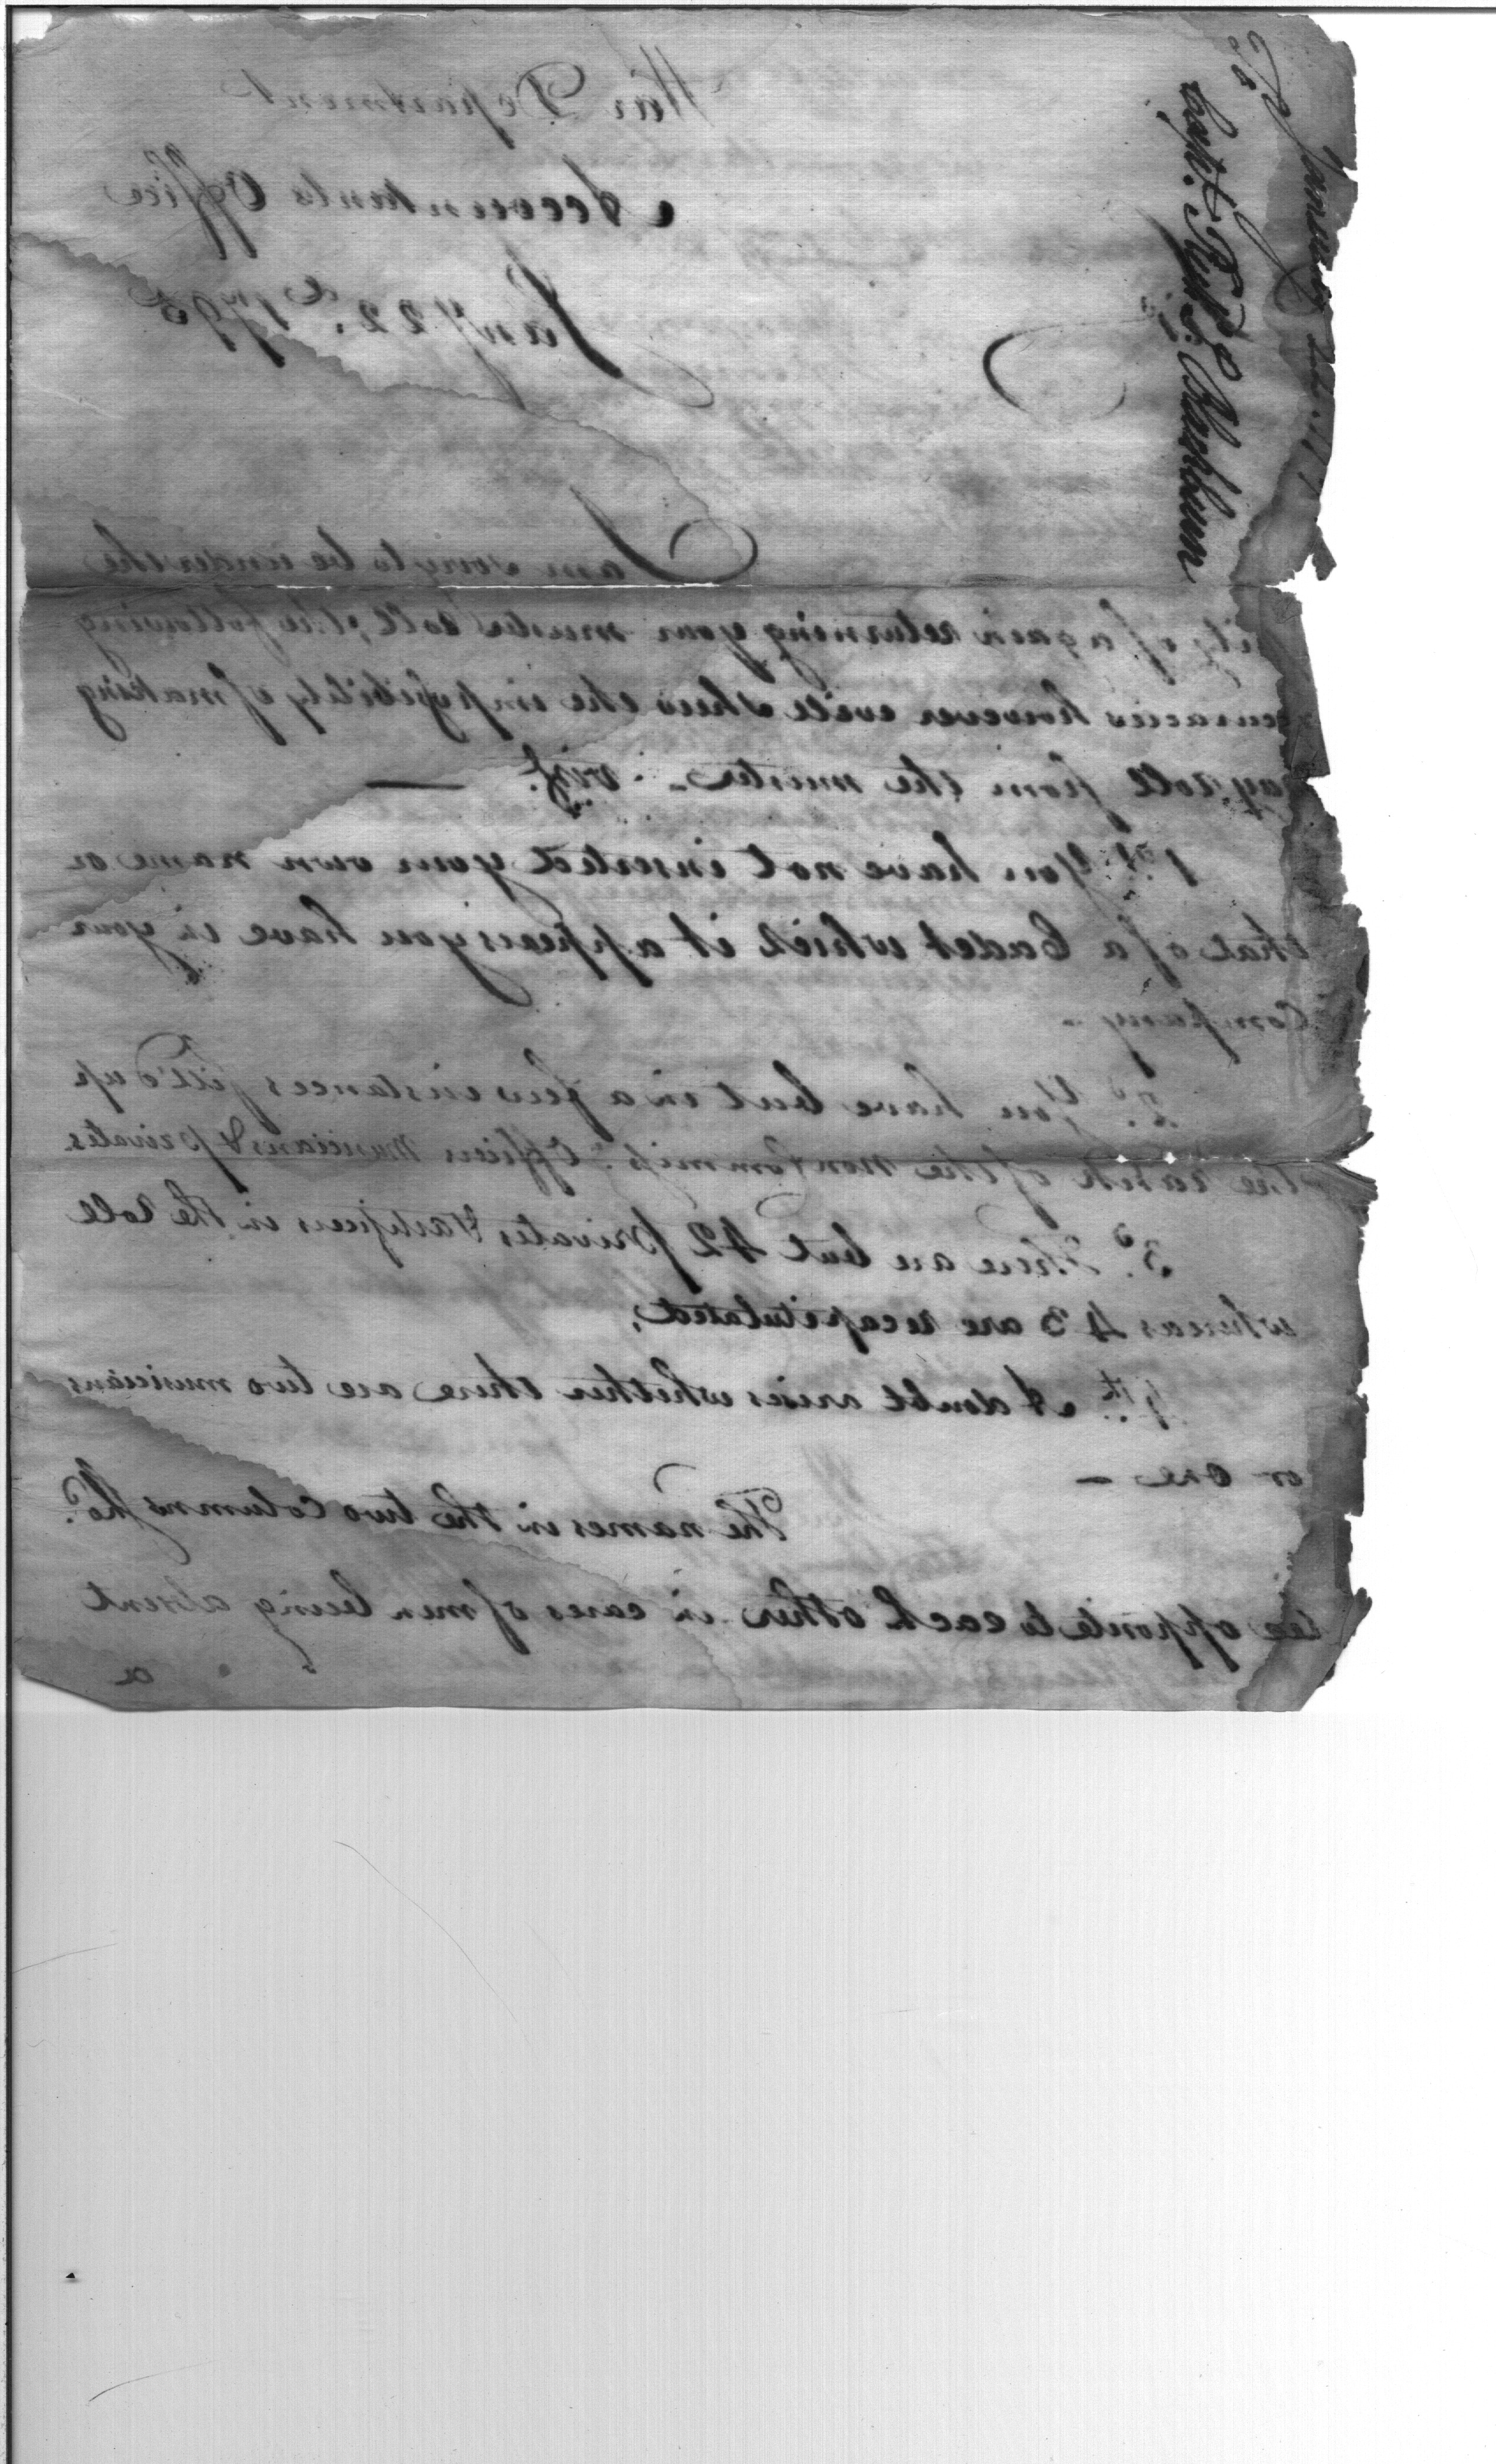 War Department
Accountants Office
Jany 22.d 1795
I am sorry to be under the
of again returning your muster roll, the following
however will shew the impossibility of making
pay roll from the muster - vizt. —
1st. You have not inserted your own name or
that of a Cadet which it appears you have in your
Company -
2d. You have but in a few instances fill'd up
the rank of the non Commiss: Officers Musicians & privates.
3d. There are but 42 privates & artificers in the roll
whereas 43 are recapitulated,
4th. A doubt arises whether there are two musicians
or one —
The names in the two columns sho.d
be opposite to each other in cases of men being absent
a
January 22.
To
Capt. Rus: Bissell